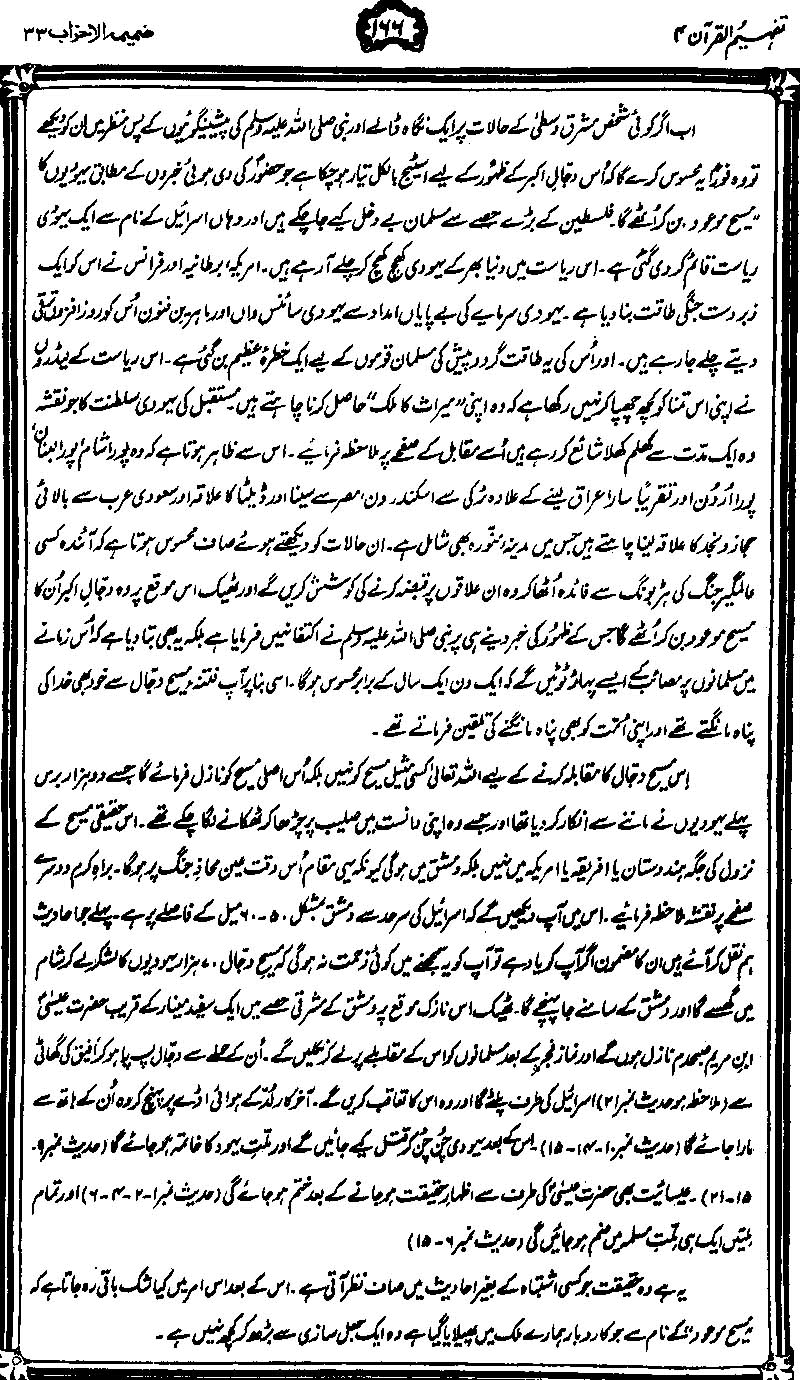 تفہیم القرآن ۴
۱۶۶
ضمیمہ الاحزاب ۳۳
اب اگر کوئی شخص مشرق وسطیٰ کے حالات پر ایک نگاہ ڈالے اور نبی صلی اللہ علیہ وسلم کی پیشینگوئیوں کے پس منظر میں ان کو دیکھے
تو وہ فوراً یہ محسوس کرے گا کہ اُس دجال اکبر کے ظہور کے لیے اسٹیج بالکل تیار ہو چکا ہے جو حضورؐ کی دی ہوئی خبروں کے مطابق یہودیوں کا
”مسیح موعود“ بن کر اُٹھے گا۔ فلسطین کے بڑے حصے سے مسلمان بے دخل کیے جا چکے ہیں اور وہاں اسرائیل کے نام سے ایک یہودی
ریاست قائم کر دی گئی ہے۔ اس ریاست میں دنیا بھر کے یہودی کھچ کھچ کر چلے آ رہے ہیں۔ امریکہ، برطانیہ اور فرانس نے اس کو ایک
زبردست جنگی طاقت بنا دیا ہے۔ یہودی سرمایے کی بے پایاں امداد سے یہودی سائنس داں اور ماہرین فنون اُس کو روز افزوں ترقی
دیتے چلے جا رہے ہیں۔ اور اُس کی یہ طاقت گرد و پیش کی مسلمان قوموں کے لیے ایک خطرۂ عظیم بن گئی ہے۔ اس ریاست کے لیڈروں
نے اپنی اس تمنا کو کچھ چھپا کر نہیں رکھا ہے کہ وہ اپنی ”میراث کا ملک“ حاصل کرنا چاہتے ہیں۔ مستقبل کی یہودی سلطنت کا جو نقشہ
وہ ایک مدت سے کھلم کھلا شائع کر رہے ہیں اُسے مقابل کے صفحے پر ملاحظہ فرمائیے۔ اس سے ظاہر ہوتا ہے کہ وہ پورا شام، پورا لبنان،
پورا اُردُن اور تقریباً سارا عراق لینے کے علاوہ ترکی سے اسکندرون، مصر سے سینا اور ڈیلٹا کا علاقہ اور سعودی عرب سے بالائی
حجاز و نجد کا علاقہ لینا چاہتے ہیں جس میں مدینہ منورہ بھی شامل ہے۔ ان حالات کو دیکھتے ہوئے صاف محسوس ہوتا ہے کہ آئندہ کسی
عالمگیر جنگ کی ہڑبونگ سے فائدہ اُٹھا کر وہ ان علاقوں پر قبضہ کرنے کی کوشش کریں گے اور ٹھیک اس موقع پر وہ دجال اکبر اُن کا
مسیح موعود بن کر اُٹھے گا جس کے ظہور کی خبر دینے ہی پر نبی صلی اللہ علیہ وسلم نے اکتفا نہیں فرمایا ہے بلکہ یہ بھی بتا دیا ہے کہ اُس زمانے
میں مسلمانوں پر مصائب کے ایسے پہاڑ ٹوٹیں گے کہ ایک دن ایک سال کے برابر محسوس ہوگا۔ اسی بنا پر آپ فتنۂ مسیح دجال سے خود بھی خدا کی
پناہ مانگتے تھے اور اپنی اُمت کو بھی پناہ مانگنے کی تلقین فرماتے تھے۔
اِس مسیح دجال کا مقابلہ کرنے کے لیے اللہ تعالیٰ کسی مثیل مسیح کو نہیں بلکہ اُس اصلی مسیح کو نازل فرمائے گا جسے دو ہزار برس
پہلے یہودیوں نے ماننے سے انکار کر دیا تھا اور جسے وہ اپنی دانست میں صلیب پر چڑھا کر ٹھکانے لگا چکے تھے۔ اس حقیقی مسیح کے
نزول کی جگہ ہندوستان یا افریقہ یا امریکہ میں نہیں بلکہ دمشق میں ہوگی کیونکہ یہی مقام اُس وقت عین محاذِ جنگ پر ہوگا۔ براہِ کرم دوسرے
صفحے پر نقشہ ملاحظہ فرمائیے۔ اس میں آپ دیکھیں گے کہ اسرائیل کی سرحد سے دمشق بمشکل ۵۰-۶۰ میل کے فاصلے پر ہے۔ پہلے جو احادیث
ہم نقل کر آئے ہیں ان کا مضمون اگر آپ کو یاد ہے تو آپ کو یہ سمجھنے میں کوئی زحمت نہ ہوگی کہ مسیح دجال ۷۰ ہزار یہودیوں کا لشکر لے کر شام
میں گھسے گا اور دمشق کے سامنے جا پہنچے گا۔ ٹھیک اس نازک موقع پر دمشق کے مشرقی حصے میں ایک سفید مینار کے قریب حضرت عیسیٰؑ
ابن مریم صبحدم نازل ہوں گے اور نماز فجر کے بعد مسلمانوں کو اس کے مقابلے پر لے کر نکلیں گے۔ اُن کے حملے سے دجال پسپا ہو کر اَفیق کی گھاٹی
سے (ملاحظہ ہو حدیث نمبر ۲۱) اسرائیل کی طرف پلٹے گا اور وہ اس کا تعاقب کریں گے۔ آخر کار لُد کے ہوائی اڈے پر پہنچ کر وہ اُن کے ہاتھ سے
مارا جائے گا (حدیث نمبر ۱۰-۱۴-۱۵)۔ اس کے بعد یہودی چُن چُن کر قتل کیے جائیں گے اور ملت یہود کا خاتمہ ہو جائے گا (حدیث نمبر ۹-
۱۵-۲۱)۔ عیسائیت بھی حضرت عیسیٰؑ کی طرف سے اظہارِ حقیقت ہو جانے کے بعد ختم ہو جائے گی (حدیث نمبر ۱-۲-۴-۶) اور تمام
ملتیں ایک ہی ملت مسلمہ میں ضم ہو جائیں گی (حدیث نمبر ۶-۱۵)
یہ ہے وہ حقیقت جو کسی اشتباہ کے بغیر احادیث میں صاف نظر آتی ہے۔ اس کے بعد اس امر میں کیا شک باقی رہ جاتا ہے کہ
”مسیح موعود“ کے نام سے جو کاروبار ہمارے ملک میں پھیلایا گیا ہے وہ ایک جعل سازی سے بڑھ کر کچھ نہیں ہے۔